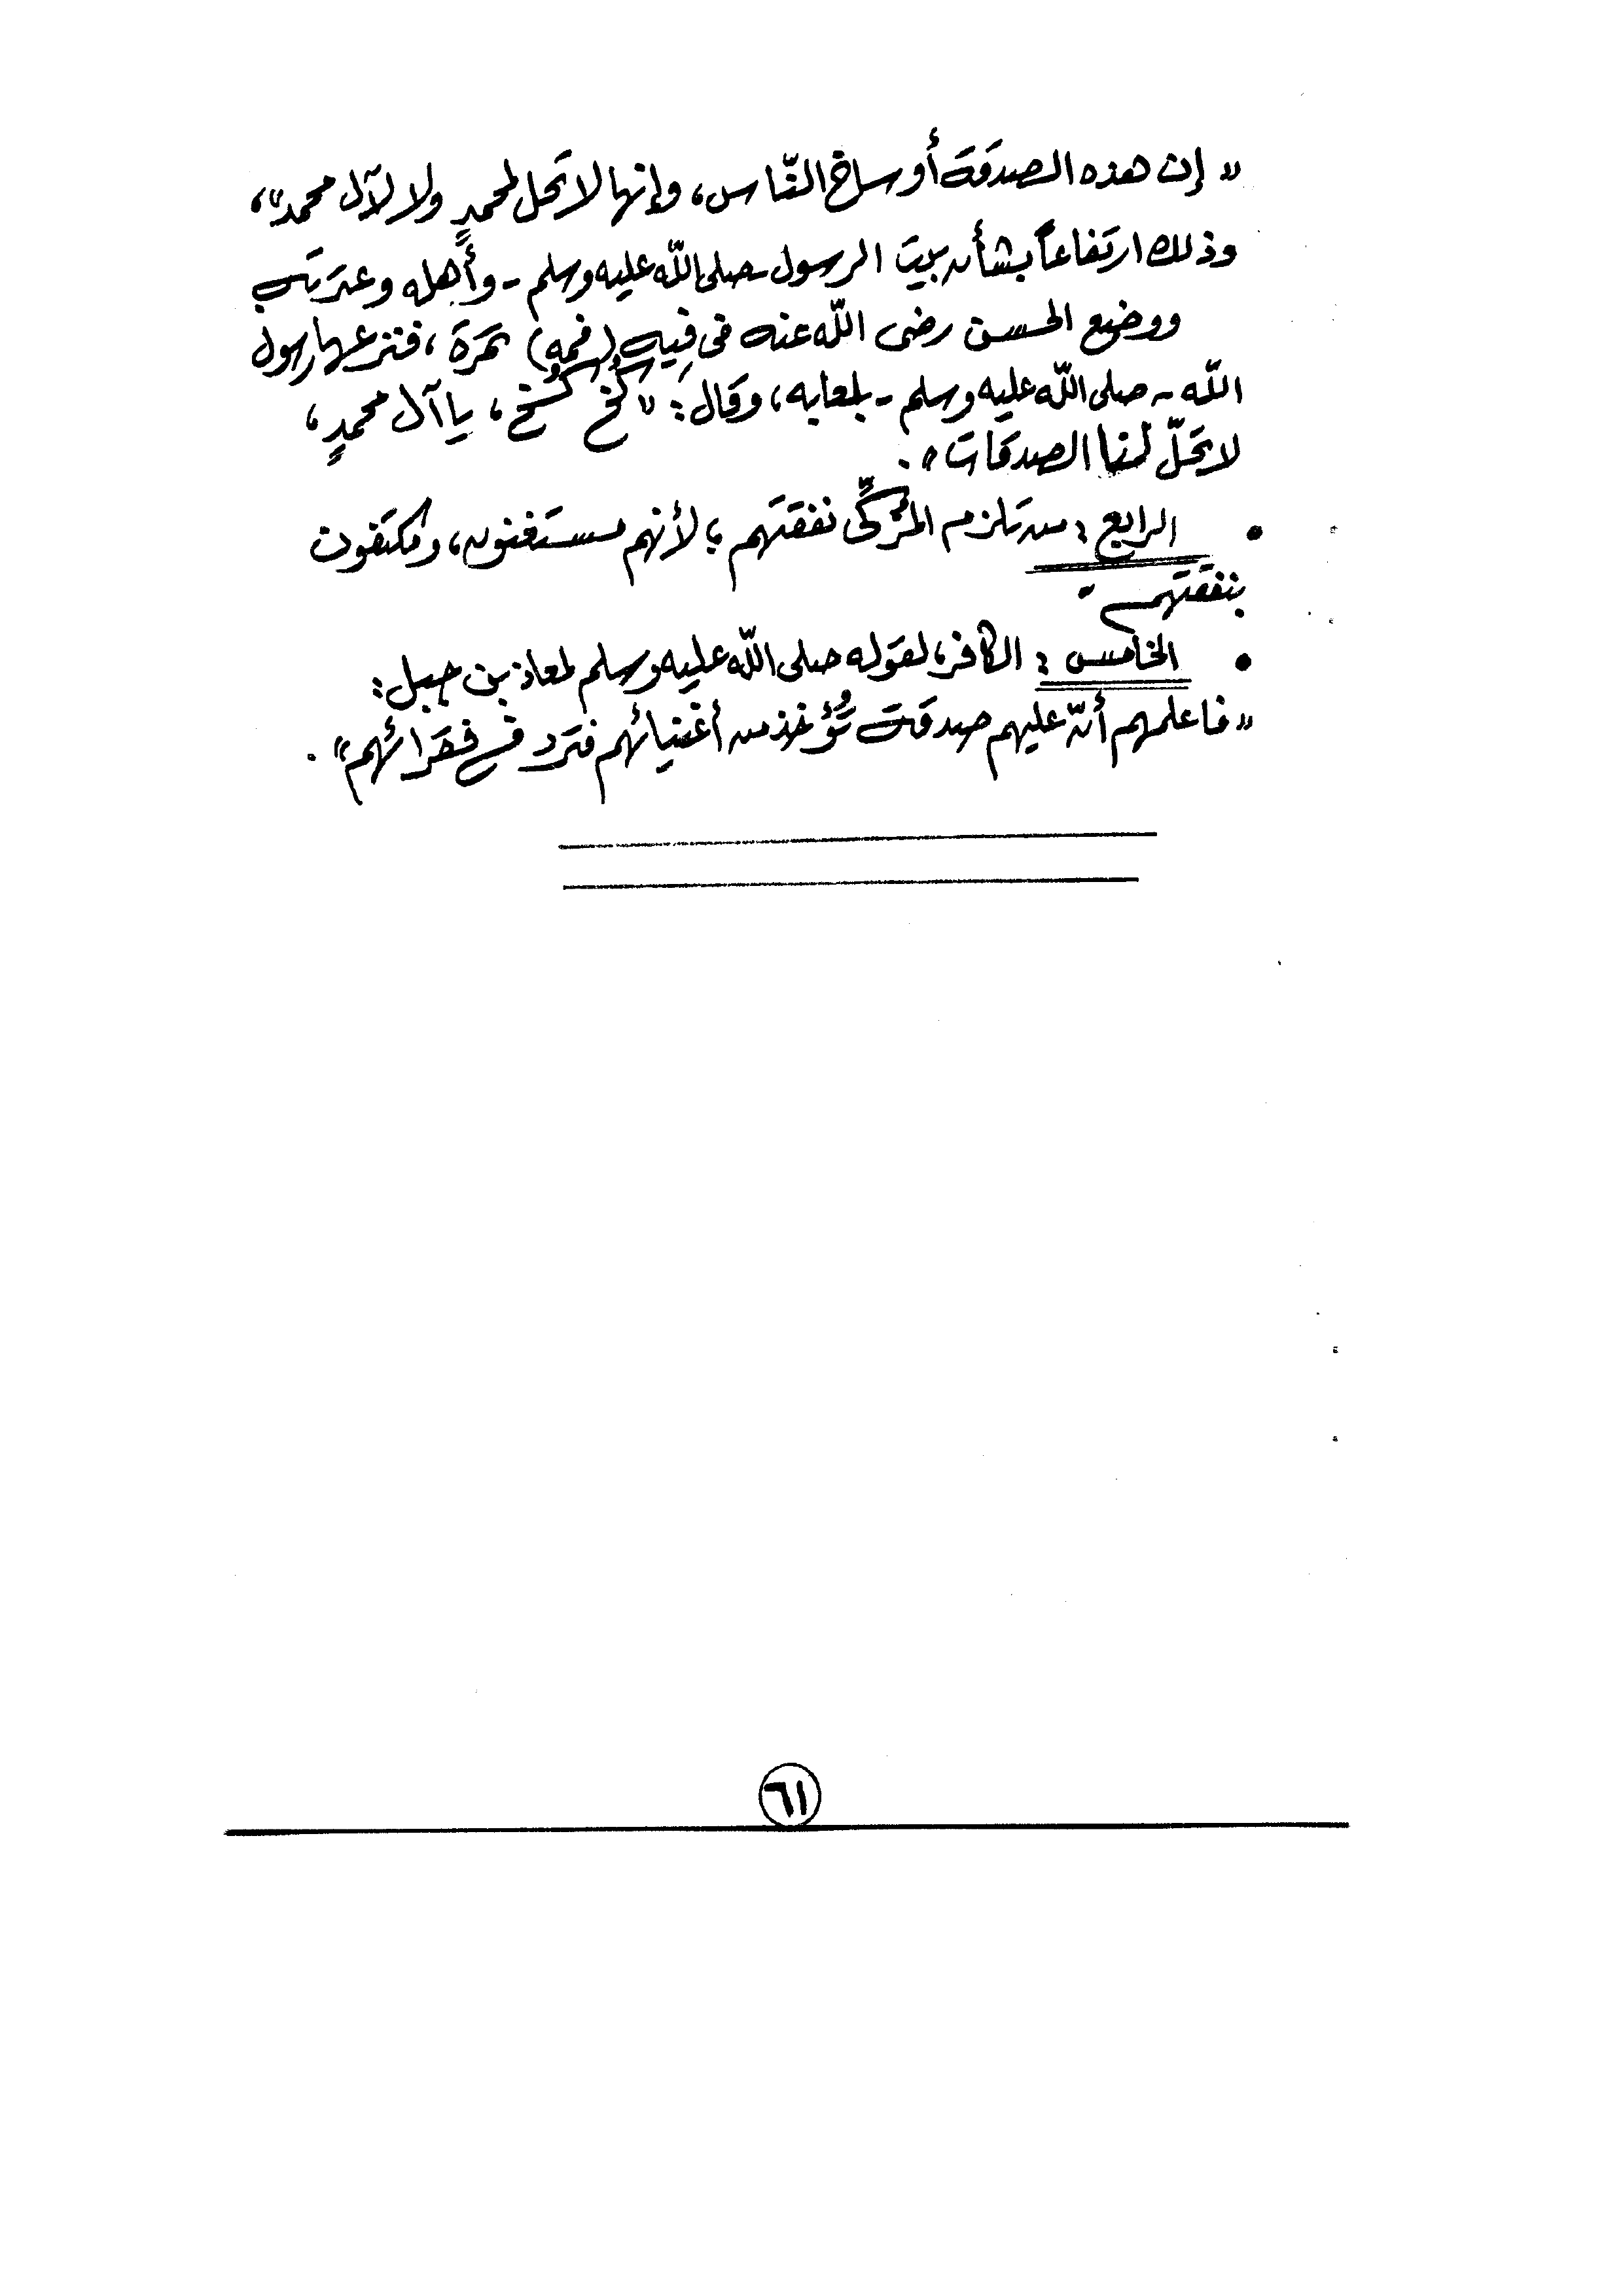 « إن هذه الصدقة أوساخ النّاس، وإنها لا تحل لمحمدٍ ولا لآل محمد»،
وذلك ارتفاعاً بشأن بيت الرسول -صلى اللّه عليه وسلم - وأهله وعترته
ووضع الحسن رضى اللّه عنه فى فِيهِ (فمه) تمرة، فنزعها رسول
اللّه - صلى اللّه عليه وسلم - بلعابه، وقال: « كُخ كُخ، يا آل محمدٍ،
لا تحلّ لنا الصدقات ».
• الرابع : من تلزم المُزكِّى نفقتهم ؛ لأنهم مستغنون، ومكتفون
بنفقتهم -
• الخامس : الكافر، لقوله صلى اللّه عليه وسلم لمعاذ بن جبل :
« فاعلمهم أنّ عليهم صدقة تُؤخذ من أغنيائهم فترد فى فقرائهم» .
٦١